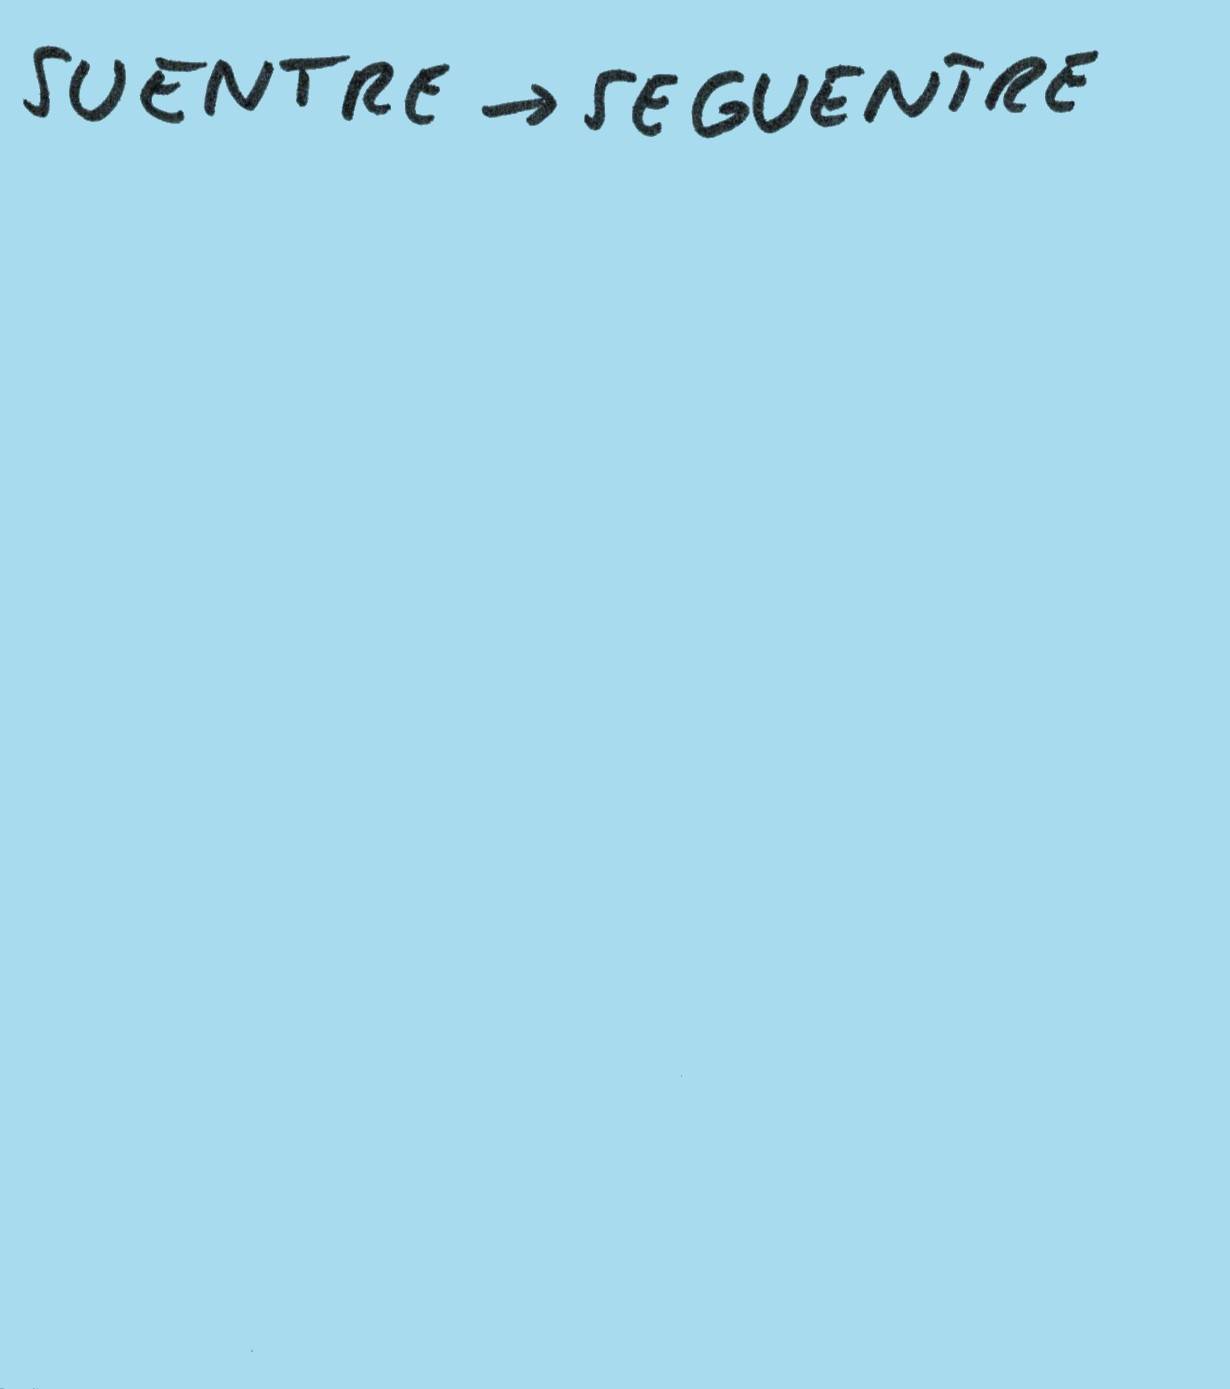 SUENTRE → SEGUENTRE